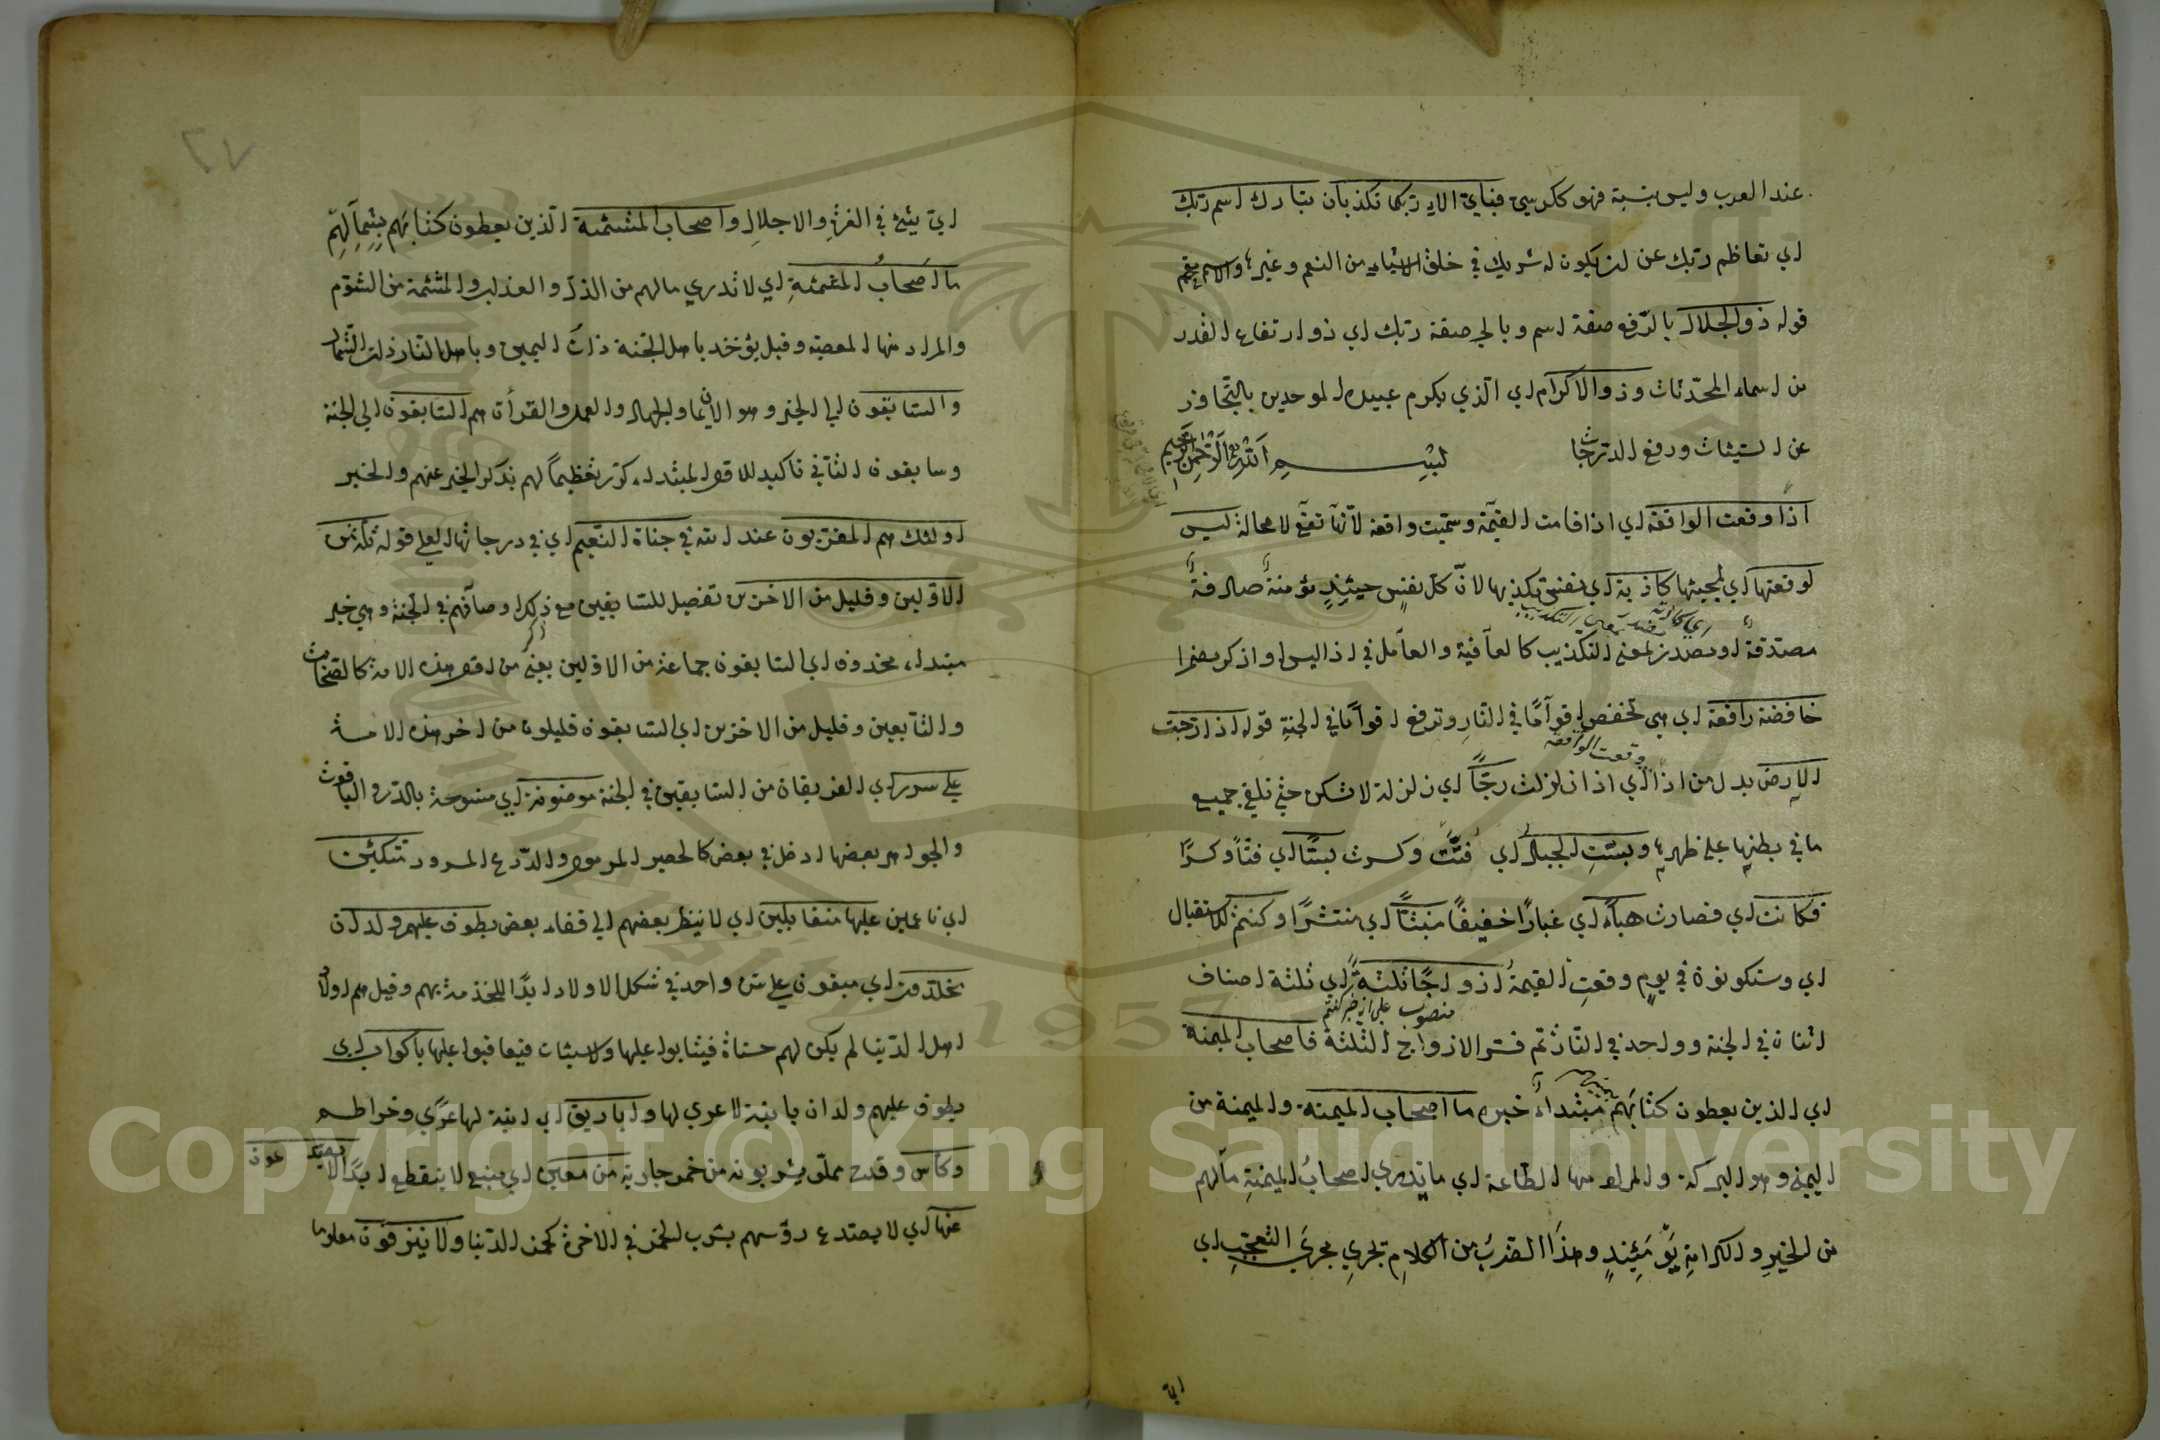 عند العرب وليس بنسبة فهو ككرسي فبأي الاء ربكما تكذبان تبارك اسم ربك
اي تعاظم ربك عن ان يكون له شريك في خلق الاشياء من النعم وغيرها والاسم مقحم
قوله ذو الجلال بالرفع صفة اسم وبالجر صفة ربك اي ذو ارتفاع القدر
من اسماء المحدثات وذو الاكرام اي الذي يكرم عبيده الموحدين بالتجاوز
عن السيئات ورفع الدرجات بسم الله الرحمن الرحيم
اذا وقعت الواقعة اي اذا قامت القيمة وسميت واقعة لانها تقع لا محالة ليس
لوقعتها اي لمجيئها كاذبة اي نفس تكذبها لان كل نفس حينئذ مؤمنة صادقة
مصدقة او مصدر بمعنى التكذيب كالعافية والعامل في اذا ليس او اذكر مضمرا
خافضة رافعة اي هي تخفض اقواما في النار وترفع اقواما في الجنة قوله اذا رجت
وقعت الواقعة
الارض بدل من اذا اي اذا زلزلت رجّاً اي زلزلة لا تسكن حتى تلقي جميع
ما في بطنها على ظهرها وبسّت الجبال اي فتّت وكسرت بسّاً اي فتّاً وكسرًا
فكانت اي فصارت هباءً اي غبارًا خفيفًا منبثّاً اي منتشرًا وكنتم للاستقبال
اي وستكونون في يوم وقعت القيمة ازواجًا ثلثة اي ثلثة اصناف
منصوب على انه خبر كنتم
اثنان في الجنة وواحد في النار ثم فسر الازواج الثلثة فاصحاب الميمنة
اي الذين يعطون كتابهم مبتداء خبره ما اصحاب الميمنة والميمنة من
اليمن وهو البركة والمراد منها الطاعة اي ما تدري اصحاب الميمنة ما لهم
من الخير والكرامة يومئذٍ وهذا الضرب من الكلام تجري مجرى التعجب اي
اية
٢٧
اي شئ في الفرة والاجلال واصحاب المشئمة الذين يعطون كتابهم بشمالهم
ما اصحاب المشئمة اي لا تدري ما لهم من الذل والعذاب والمشئمة من الشؤم
والمراد منها المعصية وقيل يؤخذ باهل الجنة ذات اليمين وباهل النار ذات الشمال
والسابقون الى الخير وهو الايمان والجهاد والعمل والقرأن هم السابقون الى الجنة
وسابقون الثاني تاكيد للاول مبتداء كرر تعظيمًا لهم بذكر الخبر عنهم والخبر
اولئك هم المقربون عند الله في جنات النعيم اي في درجاتها العلى قوله ثلة من
الاولين وقليل من الاخرين تفضيل للسابقين مع ذكر اوصافهم في الجنة وهي خبر
مبتداء محذوف اي السابقون جماعة من الاولين يعني من اول هذه الامة كالصحابة
والتابعين وقليل من الاخرين اي السابقون قليلون من اخر هذه الامة
على سرر اي الفريقان من السابقين في الجنة موضونة اي منسوجة بالدر والياقوت
والجواهر بعضها ادخل في بعض كالحصير المرمول والدرع المسرود متكئين
اي ناعمين عليها متقابلين اي لا ينظر بعضهم الى قفاء بعض يطوف عليهم ولدان
مخلدون اي مبقون على سن واحد في شكل الاولاد ابدًا للخدمة بهم وقيل هم اولاد
اهل الدنيا لم يكن لهم حسنات فيثابوا عليها ولا سيئات فيعاقبوا عليها باكواب اي
يطوف عليهم ولدان بانية لا عرى لها واباريق اي انية لها عرى وخراطم
وكأس وقدح مملو يشربونه من خمر جارية من معين اي منبع لا ينقطع ابدًا لا
يصدعون
عنها اي لا يصدع رؤسهم بشرب الخمر في الاخرة كخمر الدنيا ولا ينزفون معلوما
Copyright © King Saud University
1957